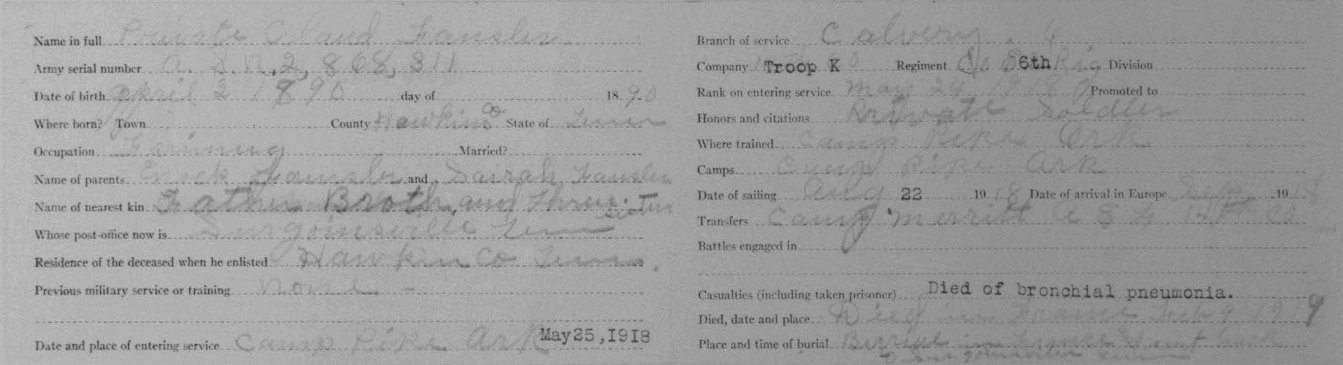 Name in full Private Claud Fansler
Army serial number A. S. N. 2, 868, 311
Date of birth April 2 1890 day of 18 90
Where born? Town County Hawkins State of Tenn
Occupation Farming Married?
Name of parents Enock Fansler and Sarah Fansler
Name of nearest kin Father Broth, and Three Sisters
Whose post-office now is Surgoinsville Tenn
Residence of the deceased when he enlisted Hawkins Co Tenn.
Previous military service or training None -
Date and place of entering service Camp Pike Ark May 25, 1918
Branch of service Calvery.
Company Troop K Regiment 6th Division
Rank on entering service May 24 191 Promoted to
Honors and citations Private Soldier
Where trained Camp Pike Ark
Camps Camp Pike Ark
Date of sailing Aug 22 1918 Date of arrival in Europe Sept 1918
Transfers Camp Merritt
Battles engaged in
Casualties (including taken prisoner) Died of bronchial pneumonia.
Died, date and place Died in France Feb 9 1919
Place and time of burial Burriel in France back
Surgoinsville